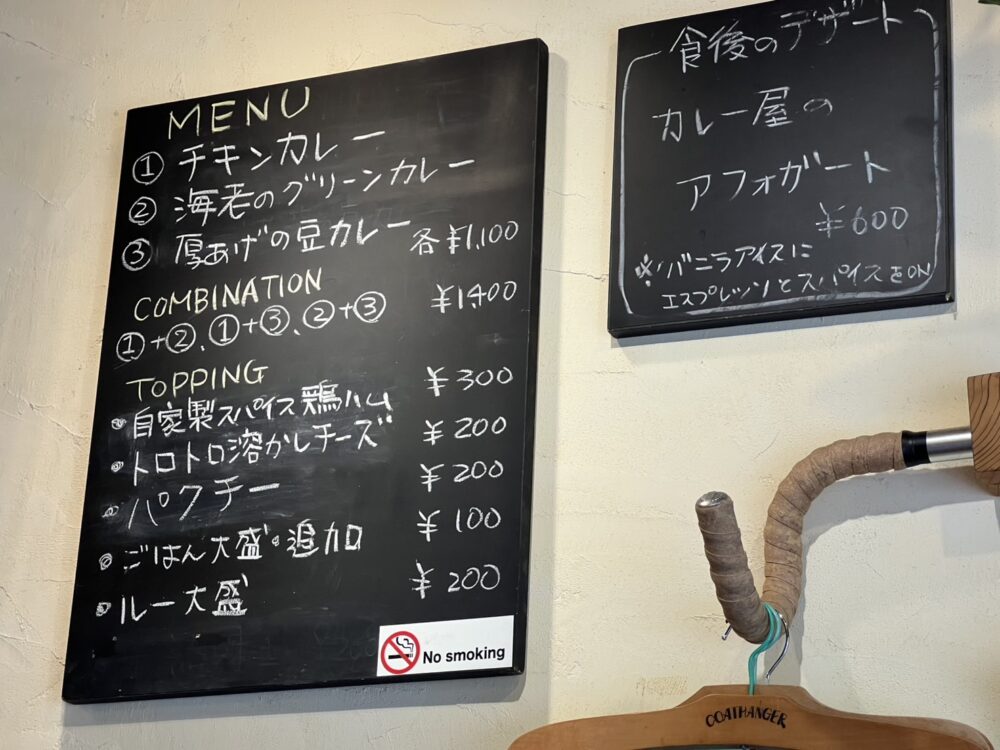 MENU
① チキンカレー
② 海老のグリーンカレー
③ 厚あげの豆カレー 各¥1,100
COMBINATION ¥1400
①+②、①+③、②+③
TOPPING
・自家製スパイス鶏ハム ¥300
・トロトロ溶かしチーズ ¥200
・パクチー ¥200
・ごはん大盛・追加 ¥100
・ルー大盛 ¥200
No smoking
食後のデザート
カレー屋の
アフォガート
¥600
※バニラアイスに
エスプレッソとスパイスをON
COATHANGER